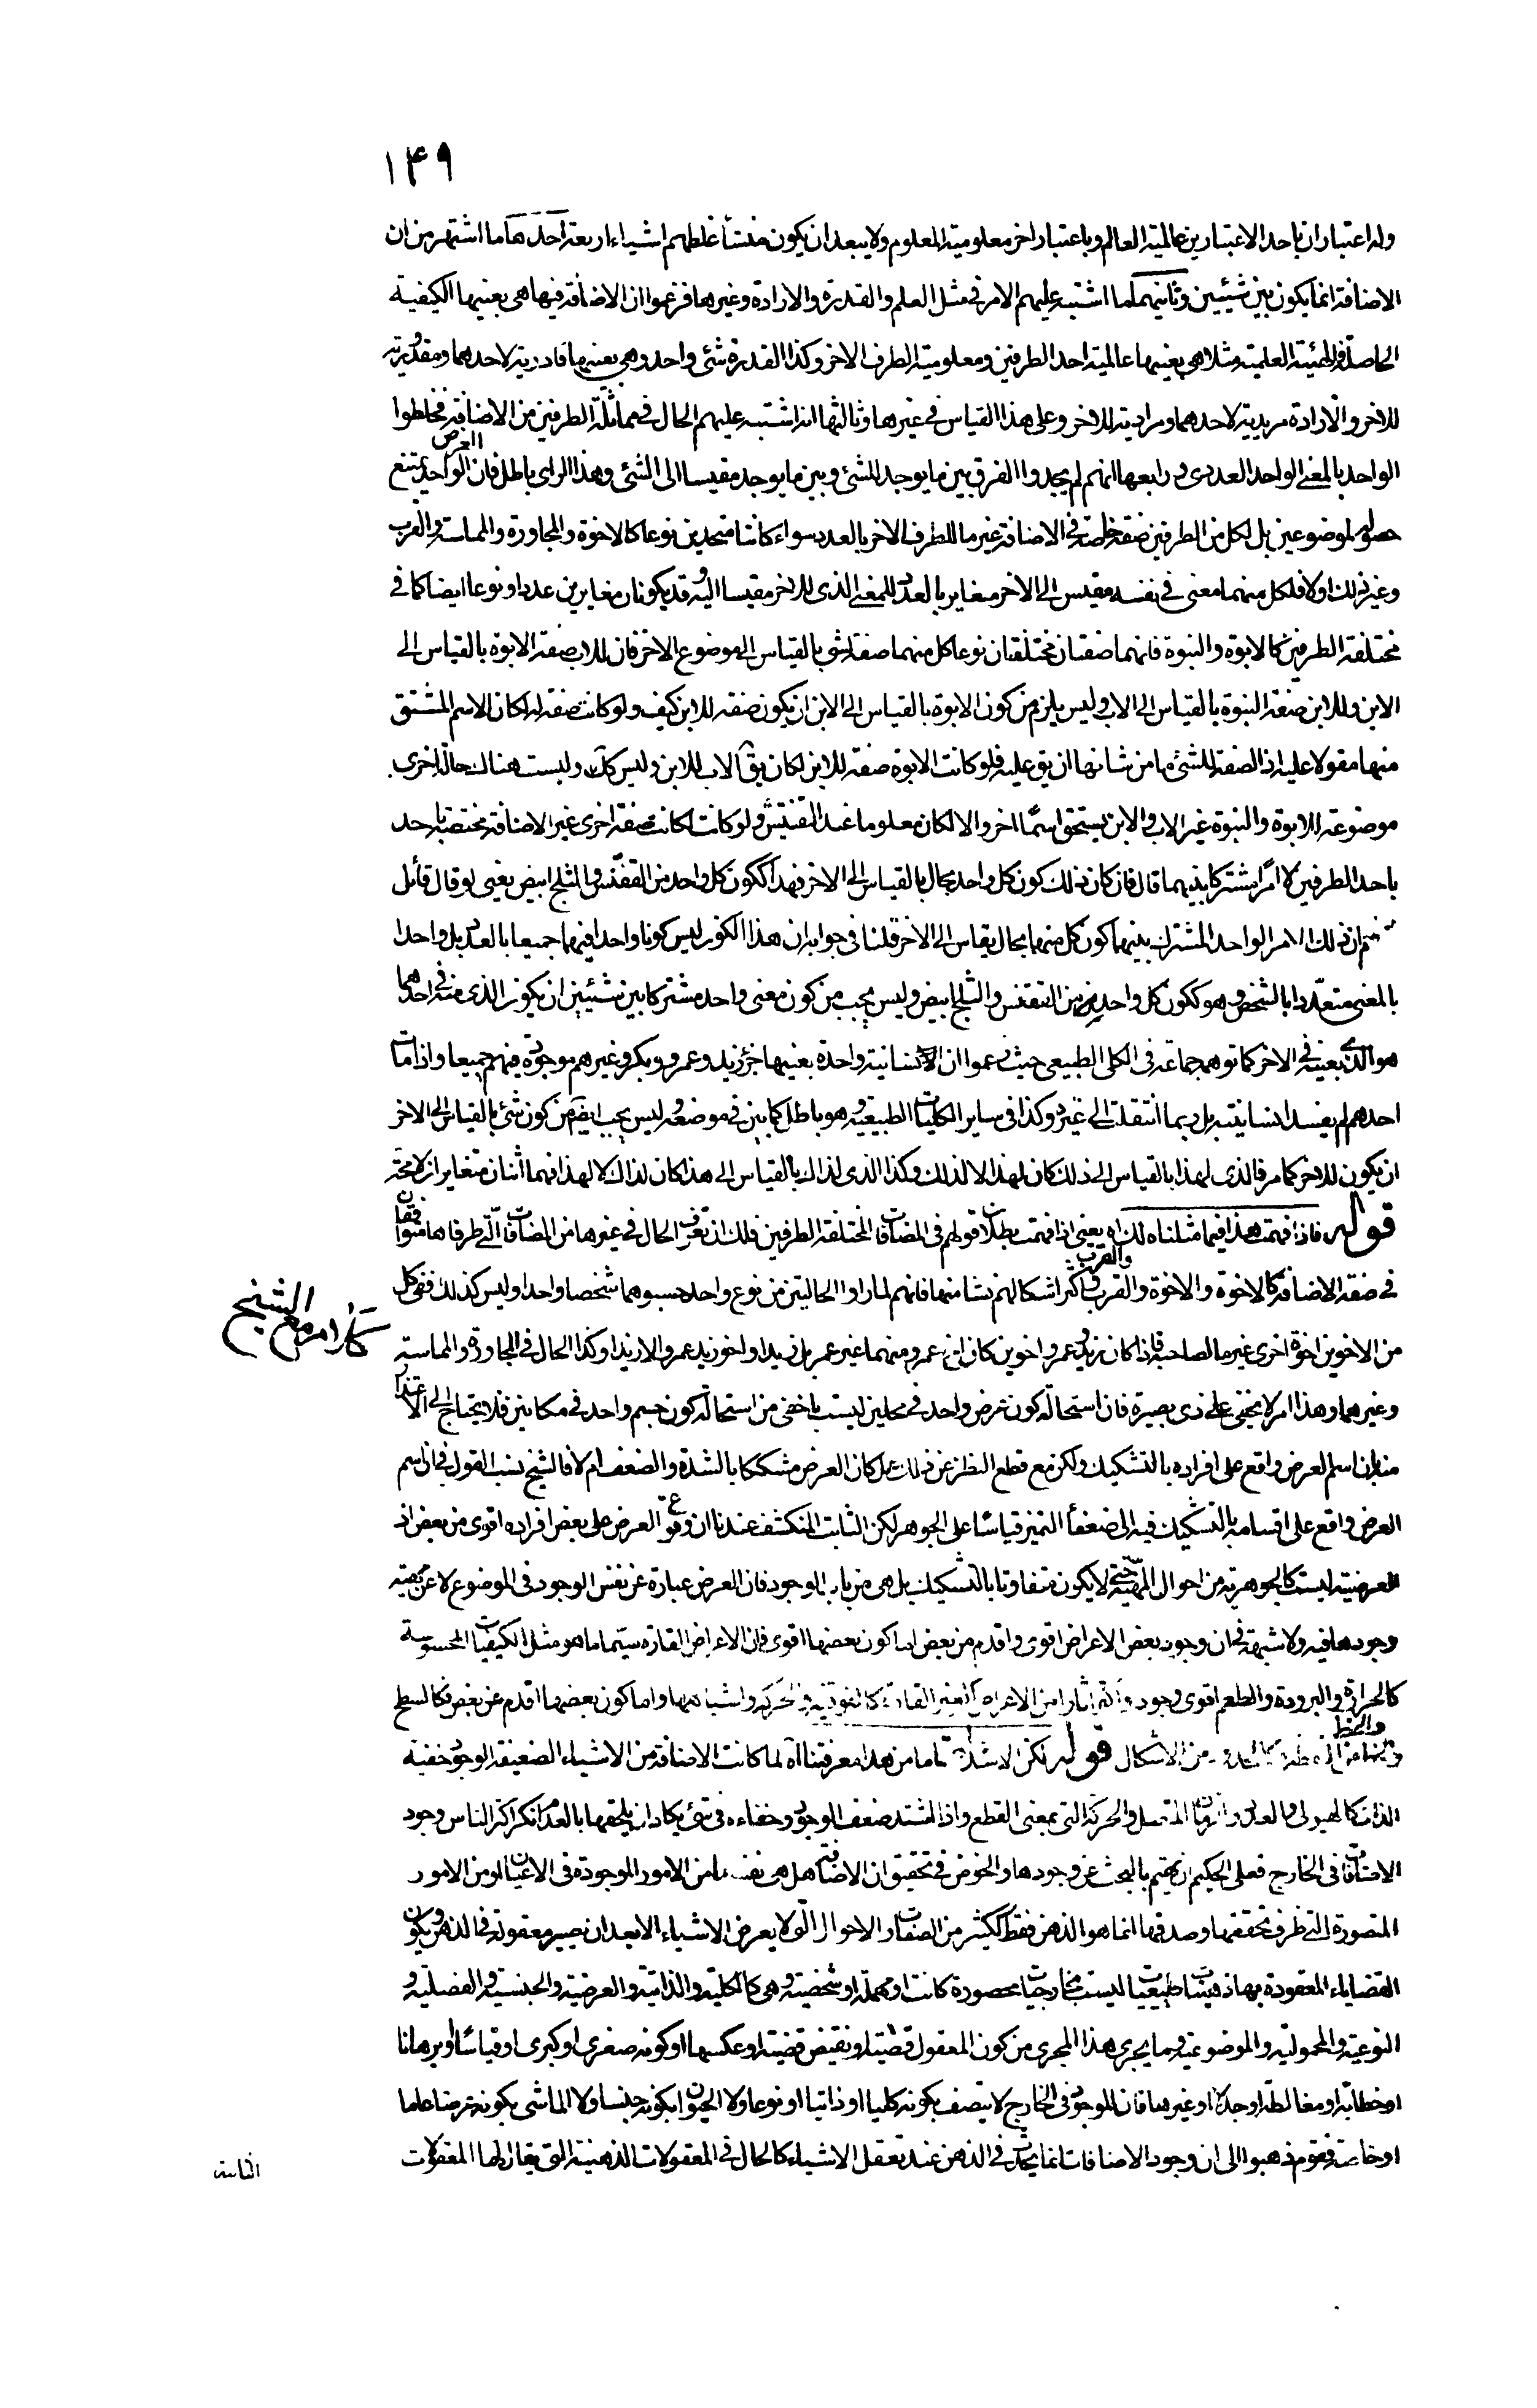 ١٤٩
وله اعتباران باحد الاعتبارين عالمية العالم وباعتبار اخر معلومية المعلوم ولا يبعد ان يكون منشأ غلطهم اشياء اربعة احدها ما اشتهر من ان
الاضافة انما يكون بين شيئين وثانيهما لما اشتبه عليهم الامر في مثل العلم والقدرة والارادة وغيرها فزعموا ان الاضافة فيها هي بعينها الكيفية
الحاصلة فالهيئة العلمية مثلا هي بعينها عالمية احد الطرفين ومعلومية الطرف الاخر وكذا القدرة شئ واحد وهي بعينها قادرية لاحدهما ومقدورية
للاخر والارادة مريدية لاحدهما ومرادية للاخر وعلى هذا القياس في غيرها وثالثها انه اشتبه عليهم الحال في مماثلة الطرفين من الاضافة فخلطوا
الواحد بالمعنى الواحد العددى ورابعها انهم لم يجدوا الفرق بين ما يوجد للشئ وبين ما يوجد مقيسا الى الشئ وهذا الراى باطل فان العرض الواحد يمتنع
حصوله لموضوعين بل لكل من الطرفين صفة خاصة في الاضافة غير ما للطرف الاخر بالعدد سواء كانتا متحدين نوعا كالاخوة والمجاورة والمماسة والقرب
وغير ذلك اولا فلكل منهما معنى في نفسه مقيس الى الاخر مغاير بالعدد للمعنى الذى للاخر مقيسا اليه وقد يكونان مغايرين عددا ونوعا ايضا كما في
مختلفة الطرفين كالابوة والنبوة فانهما صفتان مختلفتان نوعا كل منهما صفة شئ بالقياس الى موضوع الاخر فان للاب صفة الابوة بالقياس الى
الابن وللابن صفة النبوة بالقياس الى الاب وليس يلزم من كون الابوة بالقياس الى الابن ان يكون صفة للابن كيف ولو كانت صفة له لكان الاسم المشتق
منها مقولا عليه اذ الصفة للشئ ما من شانها ان يق عليه فلو كانت الابوة صفة للابن لكان يق الاب للابن وليس كك وليست هناك حالة اخرى
موضوعة للابوة والنبوة غير الاب والابن يستحق اسما اخر والا لكان معلوما عند التفتيش ولو كانت لكانت صفة اخرى غير الاضافة مختصة باحد
باحد الطرفين لا امرا مشتركا بينهما قال فان كان ذلك كون كل واحد بحال بالقياس الى الاخر فهذا ككون كل واحد من القفنس والثلج ابيض يعنى لو قال قائل
منهم ان ذلك الامر الواحد المشترك بينهما كون كل منهما بحال يقاس الى الاخر قلنا في جوابه ان هذا الكون ليس كونا واحدا فيهما جميعا بالعدد بل واحدا
بالمعنى متعددا بالشخص وهو ككون كل واحد من القفنس والثلج ابيض وليس يجب من كون معنى واحد مشتركا بين شيئين ان يكون الذى منه في احدهما
هو الذى بعينه في الاخر كما توهمه جماعة في الكلى الطبيعى حيث زعموا ان الانسانية واحدة بعينها جزء زيد وعمرو وبكر وغيرهم موجودة فيهم جميعا واذا مات
احدهم لم يفسد انسانيته بل ربما انتقلت الى غيره وكذا في ساير الكليات الطبيعية وهو باطل كما بين في موضعه وليس يجب ايضا من كون شئ بالقياس الى الاخر
ان يكون للاخر كما مر فالذى لهذا بالقياس الى ذلك كان لهذا لا لذلك وكذا الذى لذاك بالقياس الى هذا كان لذاك لا لهذا فهما اثنان متغايران لا محة
قوله فاذا فهمت هذا فيما مثلناه لك اه يعنى اذا فهمت بطلان قولهم في المضافات المختلفة الطرفين فلك ان تعرف الحال في غيرها من المضافات التى طرفاها متوافقان
في صفة الاضافة كالاخوة والاخوة والقرب والقرب واكثر اشكالهم نشا منها فانهم لما راوا الحالتين من نوع واحد حسبوهما شخصا واحدا وليس كذلك ففى كل
من الاخوين اخوة اخرى غير ما لصاحبه فاذا كان زيد وعمرو اخوين كان اخو عمرو منهما غير عمرو بل زيدا واخو زيد عمرو لا زيدا وكذا الحال في المجاورة والمماسة
كلام مع الشيخ
وغيرهما وهذا امر لا يخفى على ذى بصيرة فان استحالة كون عرض واحد في محلين ليست باخفى من استحالة كون جسم واحد في مكانين فلا يحتاج الى الاعتذار
منا بان اسم العرض واقع على افراده بالتشكيك ولكن مع قطع النظر عن ذلك هل كان العرض مشككا بالشدة والضعف ام لا فالشيخ نسب القول في ان اسم
العرض واقع على اقسامه بالتشكيك فيه الى ضعفاء التميز قياسا على الجوهر لكن الثابت المنكشف عندنا ان وقوع العرض على بعض افراده اقوى من بعض اذ
العرضية ليست كالجوهرية من احوال المهية حتى لا يكون متفاوتا بالتشكيك بل هى من باب الوجود فان العرض عبارة عن نفس الوجود في الموضوع لا عن مهية
وجودها فيه ولا شبهة في ان وجود بعض الاعراض اقوى واقدم من بعض اما كون بعضها اقوى فان الاعراض القارة سيما ما هو مثل الكيفيات المحسوسة
كالحرارة والبرودة والطعم اقوى وجودا واكثر اثارا من الاعراض الغير القارة كالفوقية والحركة واشباهها واما كون بعضها اقدم عن بعض فكالسطح
والخط من الاشكال قوله لكن الاشد اهتماما من هذا معرفتنا اه لما كانت الاضافة من الاشياء الضعيفة الوجود خفية
الذات كالهيولى والعدد والزمان المتصل والحركة التى بمعنى القطع واذا اشتد ضعف الوجود وخفاءه في شئ يكاد ان يلحقها بالعدم انكر اكثر الناس وجود
الاضافات في الخارج فعلى الحكيم ان يهتم بالبحث عن وجودها والخوض في تحقيق ان الاضافة هل هى نفسها من الامور الموجودة في الاعيان او من الامور
المتصورة التى ظرف تحققها وصدقها انما هو الذهن فقط ككثير من الصفات والاحوال التى لا يعرض الاشياء الا بعد ان تصير معقولة في الذهن ويكون
القضايا المعقودة بها ذهنيات طبيعيات ليست بخارجيات محصورة كانت او مهملة او شخصية وهى كالكلية والذاتية والعرضية والجنسية والفصلية و
النوعية والمحمولية والموضوعية وما يجرى هذا المجرى من كون المعقول قضية او نقيض قضية او عكسها او كونه صغرى او كبرى او قياسا او برهانا
او خطابة او مغالطة او جدلا او غيرها فان الموجود في الخارج لا يتصف بكونه كليا او ذاتيا او نوعا ولا الحيوان بكونه جنسا ولا الماشى بكونه عرضا عاما
او خاصة فقوم ذهبوا الى ان وجود الاضافات انما يحدث في الذهن عند تعقل الاشياء كالحال في المعقولات الذهنية التى يقال لها المعقولات
الثانية